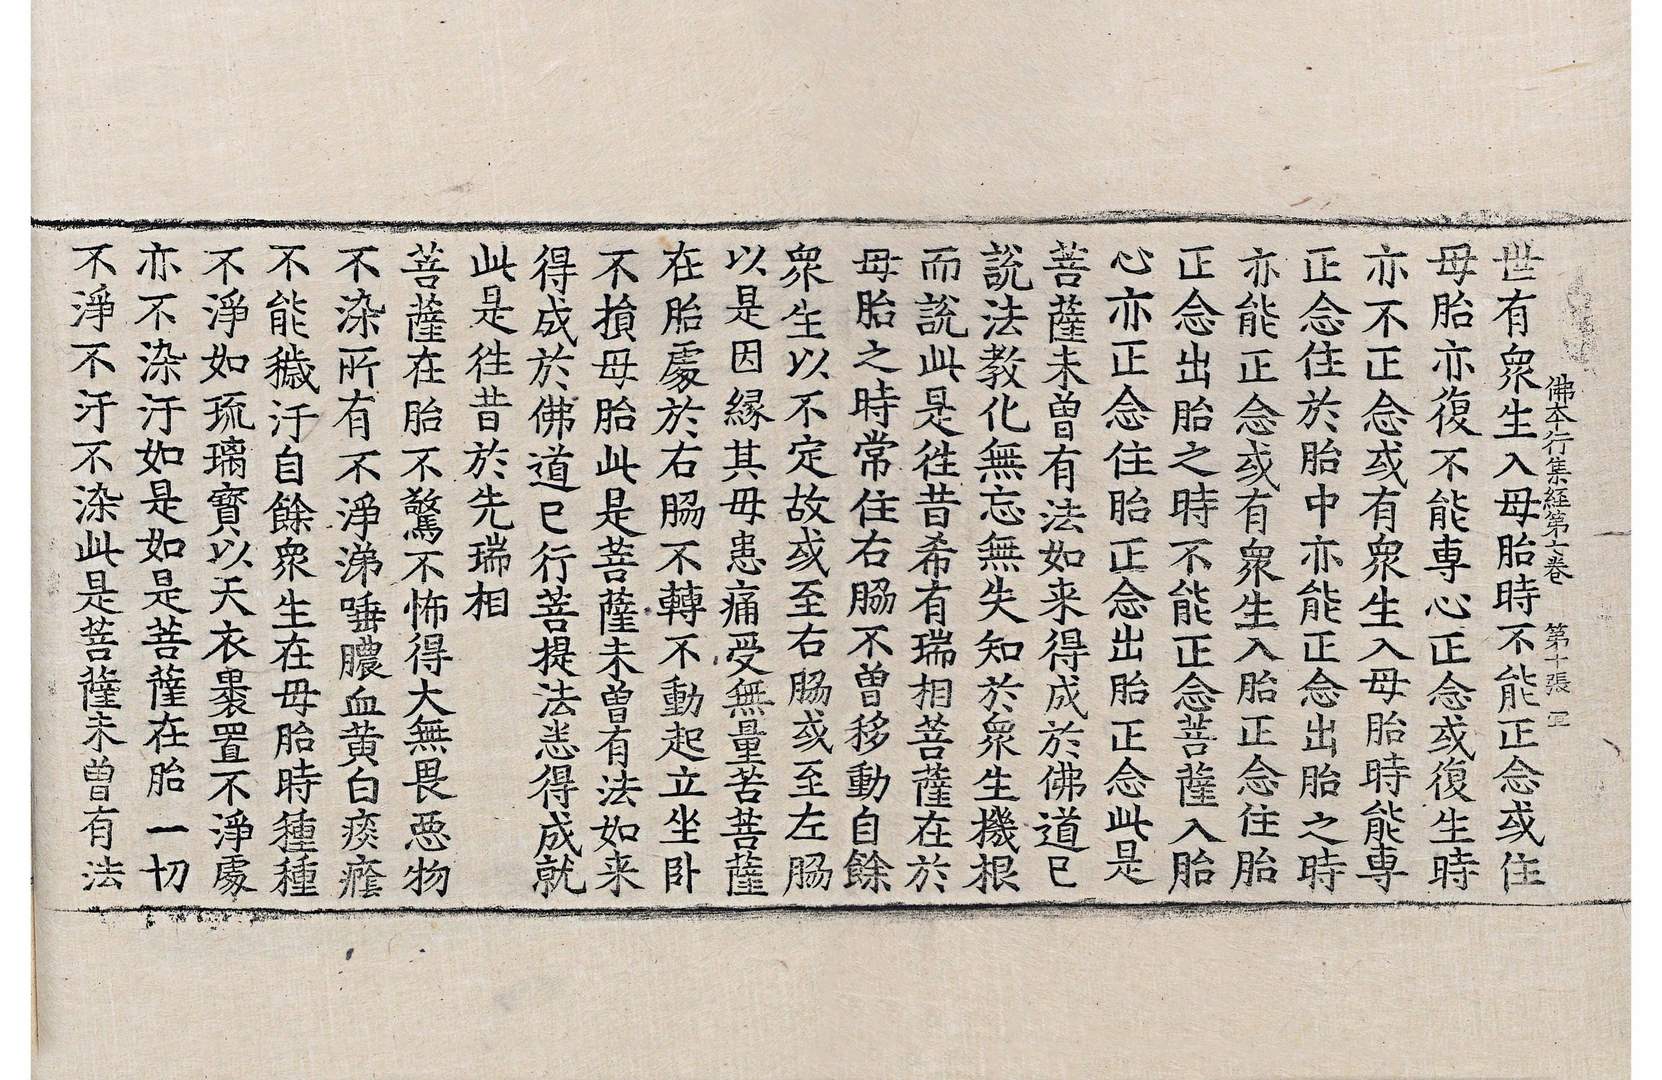 佛本行集經第六卷　第十張　𦊆
世有衆生入母胎時不能正念或住
母胎亦復不能專心正念或復生時
亦不正念或有衆生入母胎時能專
正念住於胎中亦能正念出胎之時
亦能正念或有衆生入胎正念住胎
正念出胎之時不能正念菩薩入胎
心亦正念住胎正念出胎正念此是
菩薩未曾有法如来得成於佛道已
說法教化無忘無失知於衆生機根
而說此是徃昔希有瑞相菩薩在於
母胎之時常住右脇不曾移動自餘
衆生以不定故或至右脇或至左脇
以是因縁其母患痛受無量苦菩薩
在胎處於右脇不轉不動起立坐卧
不損母胎此是菩薩未曾有法如来
得成於佛道已行菩提法悉得成就
此是徃昔於先瑞相
菩薩在胎不驚不怖得大無畏惡物
不染所有不淨涕唾膿血黄白痰癊
不能穢汙自餘衆生在母胎時種種
不淨如琉璃寶以天衣裹置不淨處
亦不染汙如是如是菩薩在胎一切
不淨不汙不染此是菩薩未曾有法